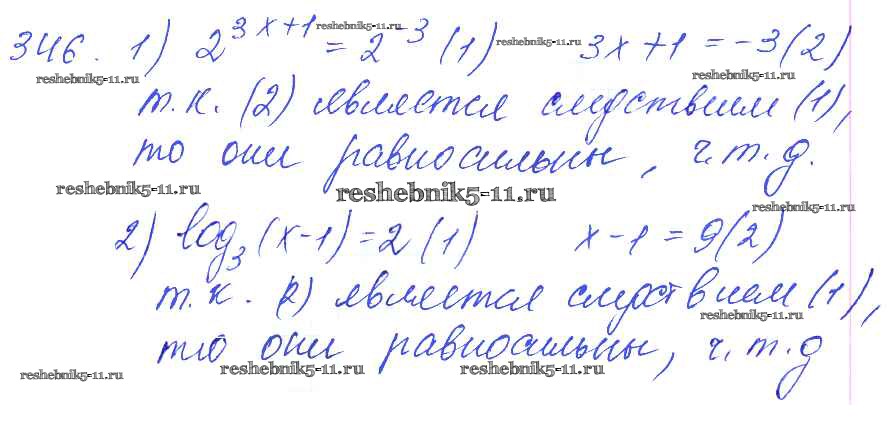 346. 1) 2^{3x+1} = 2^{-3} (1) 3x+1 = -3 (2)
reshebnik5-11.ru
reshebnik5-11.ru
reshebnik5-11.ru
reshebnik5-11.ru
т.к. (2) является следствием (1),
то они равносильны, ч.т.д.
reshebnik5-11.ru
reshebnik5-11.ru
reshebnik5-11.ru
2) log_3 (x-1) = 2 (1) x-1 = 9 (2)
т.к. (2) является следствием (1),
reshebnik5-11.ru
то они равносильны, ч.т.д
reshebnik5-11.ru
reshebnik5-11.ru
reshebnik5-11.ru